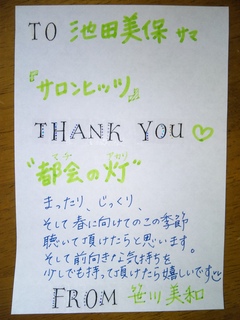 TO 池田美保 サマ
『サロンヒッツ』
THANK YOU♡
マチ アカリ
“都会の灯”
まったり、じっくり、
そして春に向けてのこの季節
聴いて頂けたらと思います。
そして前向きな気持ちを
少しでも持って頂けたら嬉しいです
FROM 笹川美和